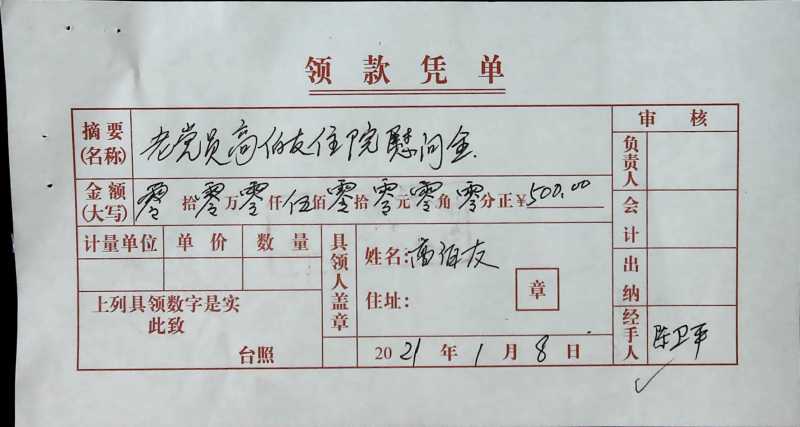 领款凭单
摘要(名称) 老党员高伯友住院慰问金.
审核
金额(大写) 零拾零万零仟伍佰零拾零元零角零分正¥500.00
负责人
计量单位 单价 数量
具领人盖章
姓名:高伯友
会计
住址:
章
出纳
上列具领数字是实
此致
台照
2021年1月8日
经手人 陈卫平